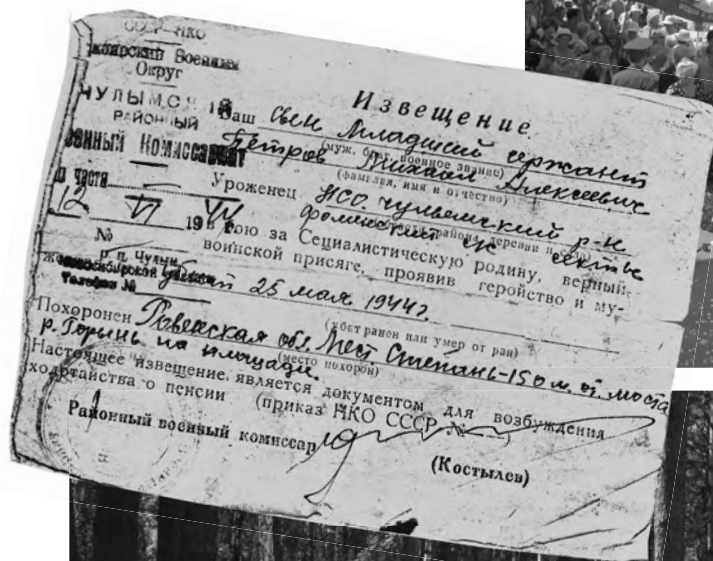 СССР—НКО
Военный
Округ
ЧУЛЫМСКИЙ
РАЙОННЫЙ
Военный Комиссариат
12 VI 19
№
р. п. Чулым
Новосибирской области
Телефон №
Извещение
Ваш сын Младший сержант
(муж, брат, военное звание)
Петров Михаил Алексеевич
(фамилия, имя и отчество)
Уроженец НСО. Чулымский р-н
в бою за Социалистическую родину, верный
воинской присяге, проявив геройство и му-
убит 25 мая 1944 г.
(убит ранен или умер от ран)
Похоронен Ровенская обл. Мест Степань-150 м. от моста
(место похорон)
р. Горынь на площади.
Настоящее извещение является документом для возбуждения
ходатайства о пенсии (приказ НКО СССР №
Районный военный комиссар
(Костылев)